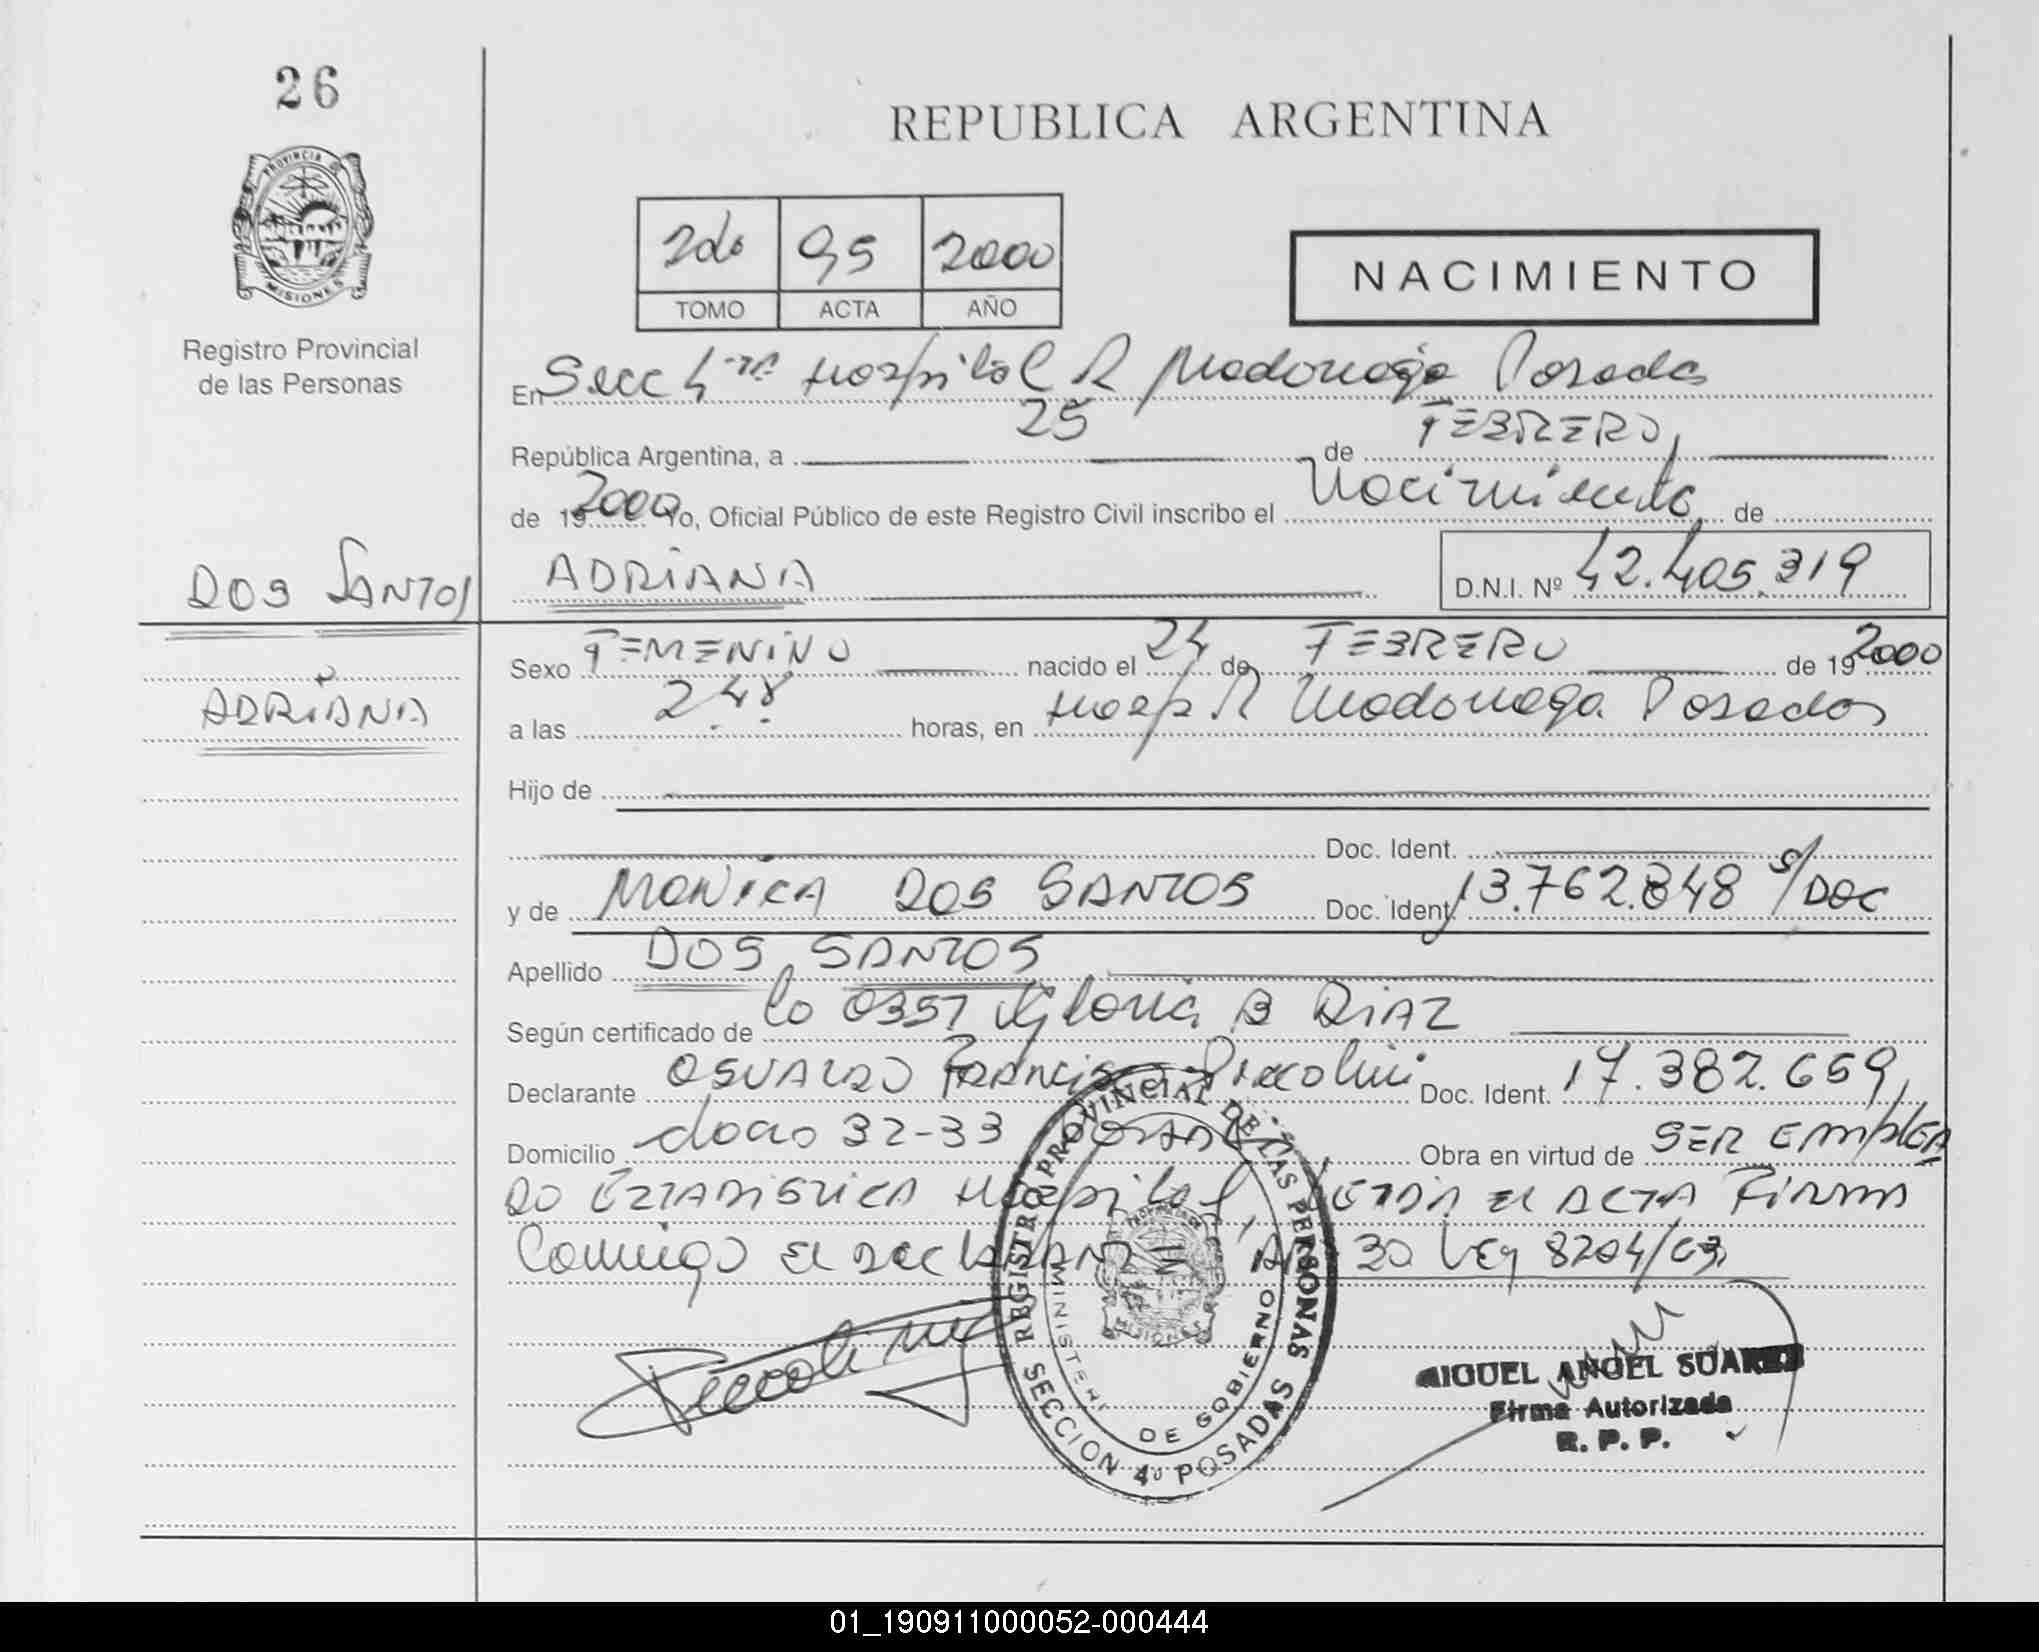 26
PROVINCIA DE
MISIONES
Registro Provincial
de las Personas
DOS SANTOS
ADRIANA
REPUBLICA ARGENTINA
2do 95 2000
TOMO ACTA AÑO
NACIMIENTO
En Secc 4ta Hospital R Madariaga Posadas
República Argentina, a 25 de FEBRERO,
de 19 2000 Yo, Oficial Público de este Registro Civil inscribo el Nacimiento de
ADRIANA D.N.I. Nº 42.405.319
Sexo FEMENINO nacido el 24 de FEBRERO de 19 2000
a las 2.48 horas, en Hosp R Madariaga Posadas
Hijo de
Doc. Ident.
y de MONICA DOS SANTOS Doc. Ident. 13.762.848 S/DOC
Apellido DOS SANTOS
Según certificado de Co 0357 Gloria B DIAZ
Declarante OSVALDO FRANCISCO Piccolini Doc. Ident. 17.382.659,
Domicilio 32-33 Obra en virtud de SER EMPLEA
DO ESTADISTICA Hospital, EL ACTA FIRMA
Conmigo EL DECLARANTE, 30 Ley 8204/63
Piccolini
REGISTRO PROVINCIAL DE LAS PERSONAS
MINISTERI DE GOBIERNO
MISIONES
SECCION 4º POSADAS
MIGUEL ANGEL SUAREZ
Firma Autorizada
R. P. P.
01_190911000052-000444